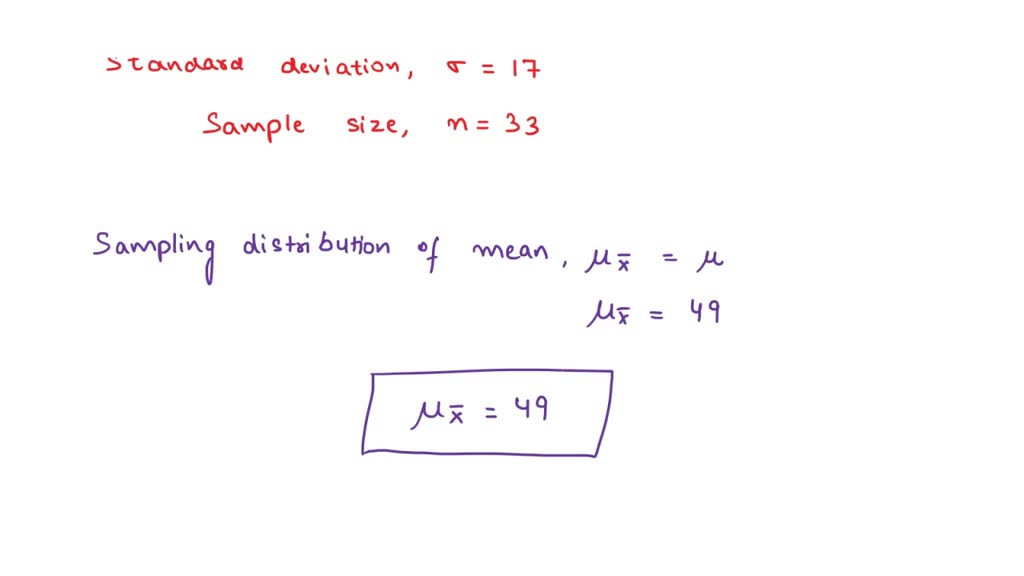 Standard deviation, σ = 17
Sample size, n = 33
Sampling distribution of mean, μx̄ = μ
μx̄ = 49
μx̄ = 49